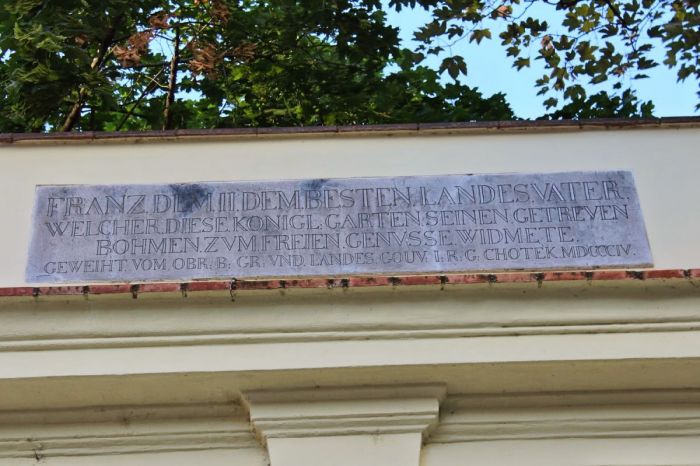 FRANZ.DEM.II.DEM.BESTEN.LANDES.VATER.
WELCHER.DIESE.KÖNIGL:GÄRTEN.SEINEN.GETREVEN
BÖHMEN.ZVM.FREIEN.GENVSSE.WIDMETE.
GEWEIHT.VOM.OBR.B.GR.VND.LANDES.GOUV.I.R.G.CHOTEK.MDCCCIV.